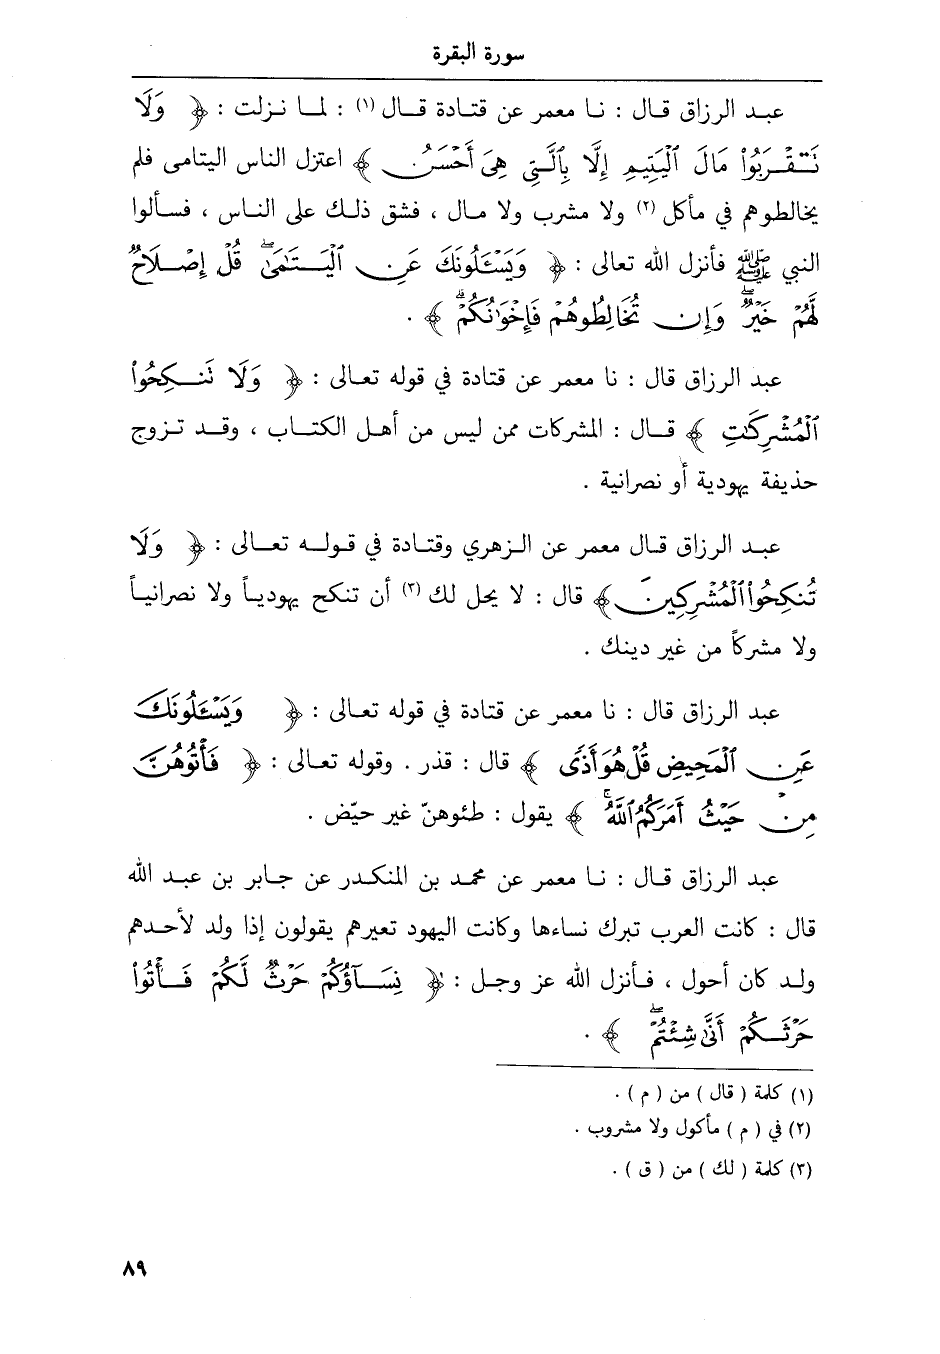 سورة البقرة
عبـد الرزاق قـال : نـا معمر عن قتادة قـال (١) : لمـا نـزلت : ﴿ وَلَا
تَقْرَبُوا۟ مَالَ ٱلْيَتِيمِ إِلَّا بِٱلَّتِى هِىَ أَحْسَنُ ﴾ اعتزل الناس اليتامى فلم
يخالطوهم في مأكل (٢) ولا مشرب ولا مـال ، فشق ذلـك على النـاس ، فسـألوا
النبي ﷺ فأنزل الله تعالى : ﴿ وَيَسْـَٔلُونَكَ عَنِ ٱلْيَتَـٰمَىٰ ۖ قُلْ إِصْلَاحٌ
لَّهُمْ خَيْرٌ ۖ وَإِن تُخَالِطُوهُمْ فَإِخْوَٰنُكُمْ ۚ ﴾ .
عبد الرزاق قال : نا معمر عن قتادة في قوله تعـالى : ﴿ وَلَا تَنكِحُوا۟
ٱلْمُشْرِكَـٰتِ ﴾ قـال : المشركات ممن ليس من أهـل الكتـاب ، وقـد تـزوج
حذيفة يهودية أو نصرانية .
عبـد الرزاق قـال معمر عن الـزهري وقتـادة في قـولـه تعـالى : ﴿ وَلَا
تُنكِحُوا۟ ٱلْمُشْرِكِينَ ﴾ قال : لا يحل لك (٣) أن تنكح يهوديـاً ولا نصرانيـاً
ولا مشركاً من غير دينك .
عبد الرزاق قال : نا معمر عن قتادة في قوله تعـالى : ﴿ وَيَسْـَٔلُونَكَ
عَنِ ٱلْمَحِيضِ قُلْ هُوَ أَذًى ﴾ قال : قذر . وقوله تعـالى : ﴿ فَأْتُوهُنَّ
مِنْ حَيْثُ أَمَرَكُمُ ٱللَّهُ ۚ ﴾ يقول : طئوهنّ غير حيّض .
عبد الرزاق قـال : نـا معمر عن محمـد بن المنكـدر عن جـابر بن عبـد الله
قال : كانت العرب تبرك نساءها وكانت اليهود تعيرهم يقولون إذا ولد لأحـدهم
ولـد كان أحول ، فـأنزل الله عز وجـل : ﴿ نِسَآؤُكُمْ حَرْثٌ لَّكُمْ فَأْتُوا۟
حَرْثَكُمْ أَنَّىٰ شِئْتُمْ ۖ ﴾ .
(١) كلمة ( قال ) من ( م ) .
(٢) في ( م ) مأكول ولا مشروب .
(٣) كلمة ( لك ) من ( ق ) .
٨٩